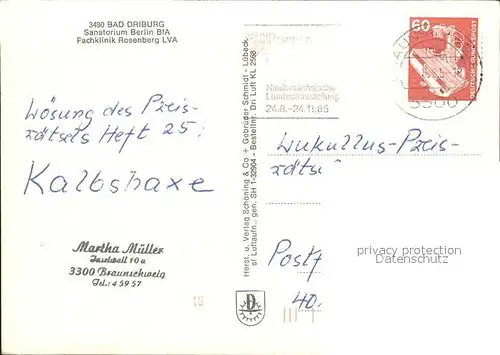 3490 BAD DRIBURG
Sanatorium Berlin BfA
Fachklinik Rosenberg LVA
Lösung des Preis-
rätsels Heft 25:
Kalbshaxe
Martha Müller
Inselwall 10a
3300 Braunschweig
Tel.: 4 59 57
Herst. u. Verlag Schöning & Co + Gebrüder Schmidt · Lübeck
sf Luftaufn., gen. SH 1-32904 - Bestellnr. Dri Luft KL 2568
Niedersächsische
Landesausstellung
24.8.-24.11.85
60
DEUTSCHE BUNDESPOST
3300
Lukullus-Preis-
rätse
Postf
40.
privacy protection
Datenschutz
15
D